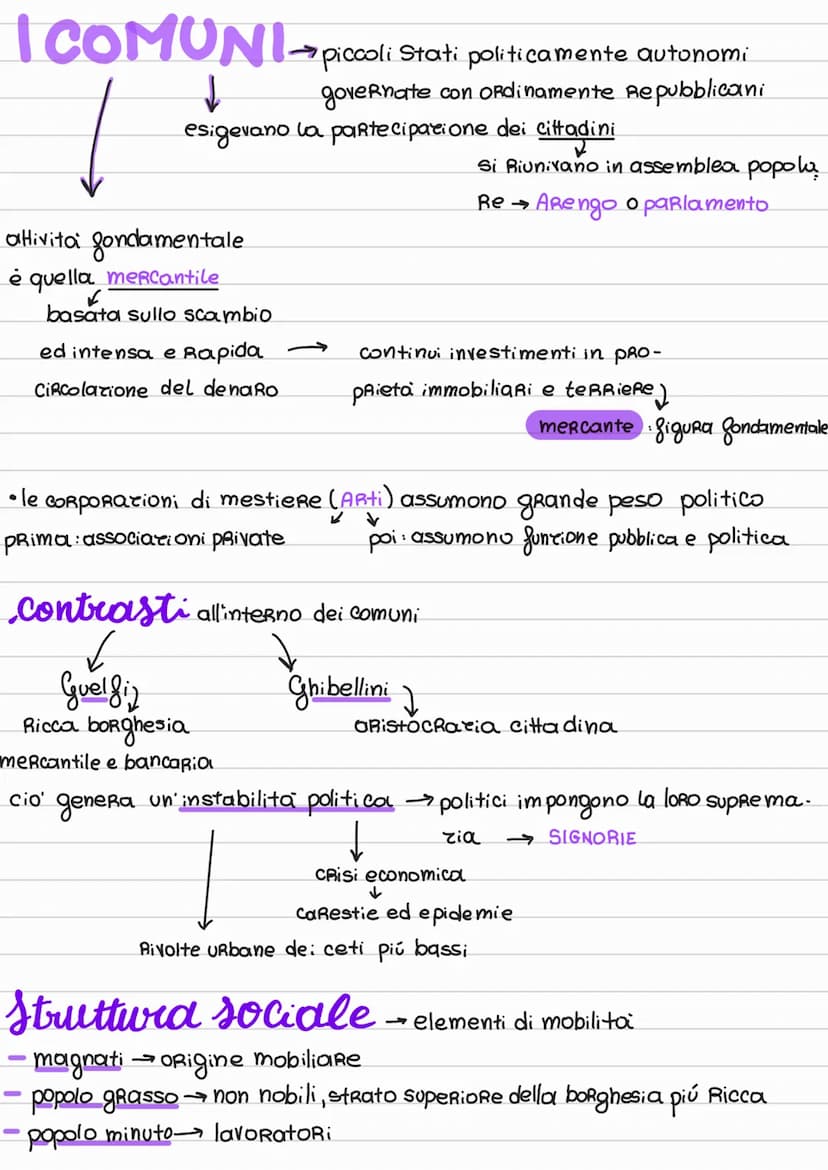 I COMUNI → piccoli Stati politicamente autonomi
governate con ordinamente repubblicani
esigevano la partecipazione dei cittadini
si riunivano in assemblea popola
re → Arengo o parlamento
attività fondamentale
è quella mercantile
basata sullo scambio
ed intensa e rapida → continui investimenti in pro-
circolazione del denaro prietà immobiliari e terriere
mercante : figura fondamentale
• le corporazioni di mestiere (Arti) assumono grande peso politico
prima: associazioni private poi: assumono funzione pubblica e politica
contrasti all'interno dei comuni
Guelfi Ghibellini
Ricca borghesia aristocrazia cittadina
mercantile e bancaria
cio' genera un'instabilità politica → politici impongono la loro suprema-
zia → SIGNORIE
crisi economica
carestie ed epidemie
Rivolte urbane dei ceti piú bassi
Struttura sociale → elementi di mobilità
- magnati → origine mobiliare
- popolo grasso → non nobili, strato superiore della borghesia piú ricca
- popolo minuto → lavoratori